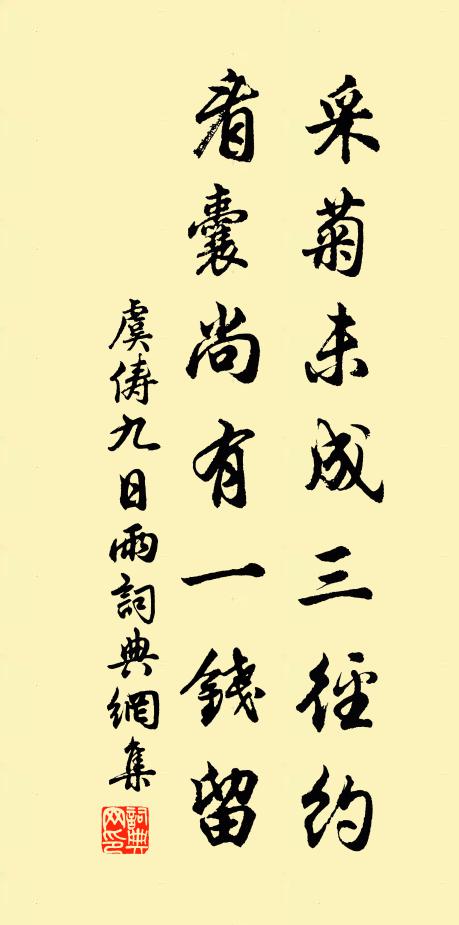 采菊未成三徑約
看囊尚有一錢留
虞儔九日雨詞典網集
詞典
网印